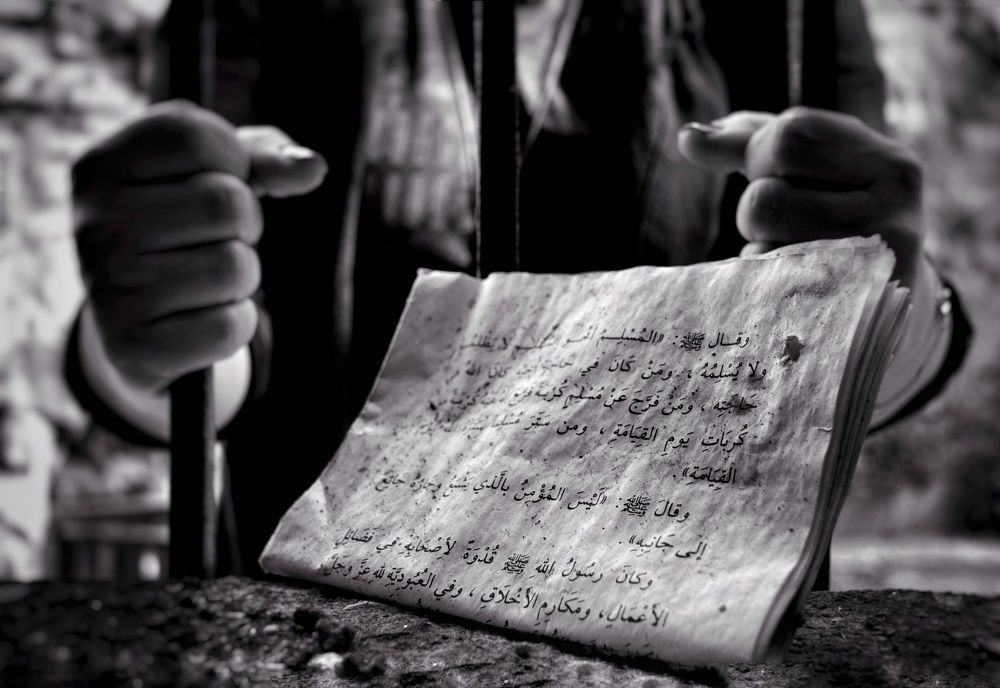 وقال ﷺ: «المُسْلِمُ أَخُو المُسْلِمِ لا يَظْلِمُهُ
ولا يُسْلِمُهُ، ومَنْ كَانَ في حَاجَةِ أَخِيهِ كانَ اللهُ في
حَاجَتِهِ، ومَنْ فَرَّجَ عَنْ مُسْلِمٍ كُرْبَةً فرَّجَ
كُرُبَاتِ يَومِ القِيَامَةِ، ومن سَتَرَ مُسْلِمًا
القِيَامَةِ».
وقالَ ﷺ: «لَيْسَ المُؤْمِنُ بِالَّذي يَشْبَعُ وجارُهُ جائعٌ
إلى جَانِبِهِ».
وكَانَ رسُولُ اللهِ ﷺ قُدْوَةً لأصْحَابِهِ في فَضَائِلِ
الأَعْمَالِ، ومَكَارِمِ الأَخْلَاقِ، وفي العُبُودِيَّةِ للهِ عَزَّ وجَلَّ